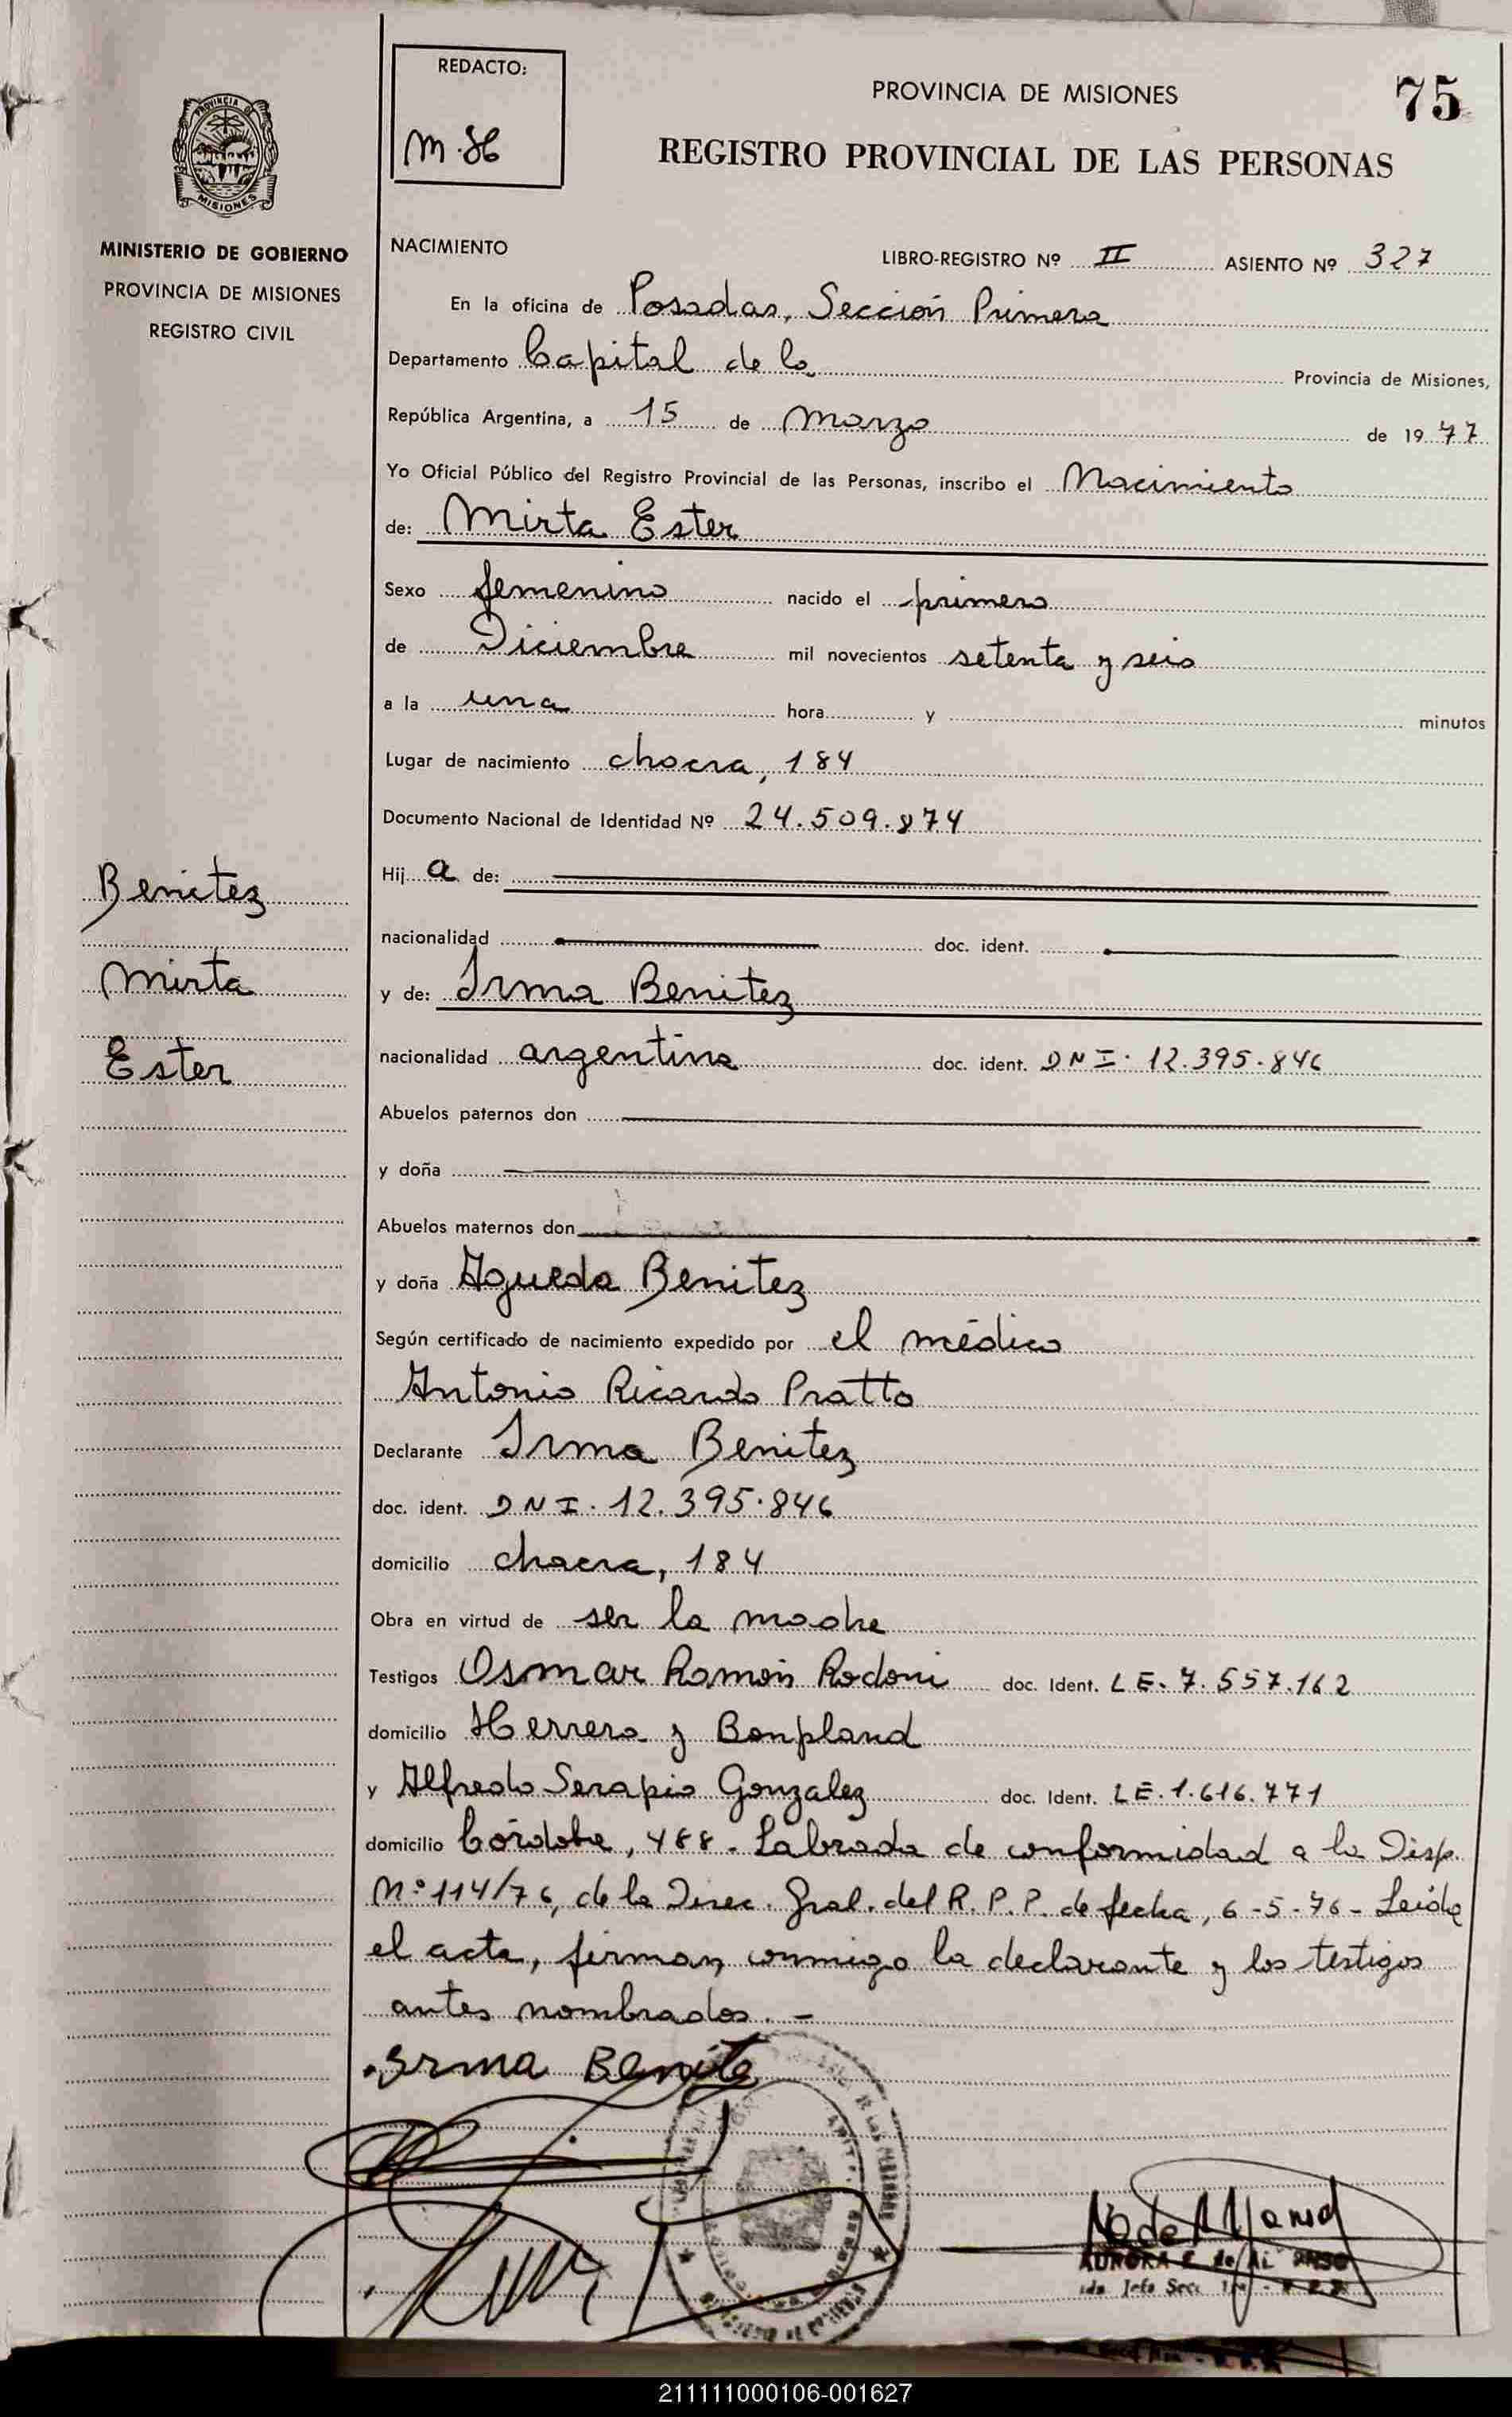 REDACTO:
M.86
PROVINCIA DE MISIONES
75
REGISTRO PROVINCIAL DE LAS PERSONAS
MISIONES
MINISTERIO DE GOBIERNO
PROVINCIA DE MISIONES
REGISTRO CIVIL
NACIMIENTO
LIBRO-REGISTRO Nº II ASIENTO Nº 327
En la oficina de Posadas, Sección Primera
Departamento Capital de la Provincia de Misiones,
República Argentina, a 15 de Marzo de 1977
Yo Oficial Público del Registro Provincial de las Personas, inscribo el Nacimiento
de: Mirta Ester
Sexo femenino nacido el primero
de Diciembre mil novecientos setenta y seis
a la una hora y minutos
Lugar de nacimiento chacra, 184
Documento Nacional de Identidad Nº 24.509.874
Hij a de:
Benitez
nacionalidad doc. ident.
Mirta
y de: Irma Benitez
Ester
nacionalidad argentina doc. ident. DNI. 12.395.846
Abuelos paternos don
y doña
Abuelos maternos don
y doña Agueda Benitez
Según certificado de nacimiento expedido por el médico
Antonio Ricardo Pratto
Declarante Irma Benitez
doc. ident. DNI. 12.395.846
domicilio chacra, 184
Obra en virtud de ser la madre
Testigos Osmar Ramón Rodoni doc. Ident. LE. 7.557.162
domicilio Herrera y Bonpland
y Alfredo Serapio Gonzalez doc. Ident. LE. 1.616.771
domicilio Córdoba, 488. Labrada de conformidad a la Disp.
Nº 114/76, de la Direc. Gral. del R.P.P. de fecha, 6-5-76 - Leída
el acta, firman conmigo la declarante y los testigos
antes nombrados. -
Irma Benite
211111000106-001627